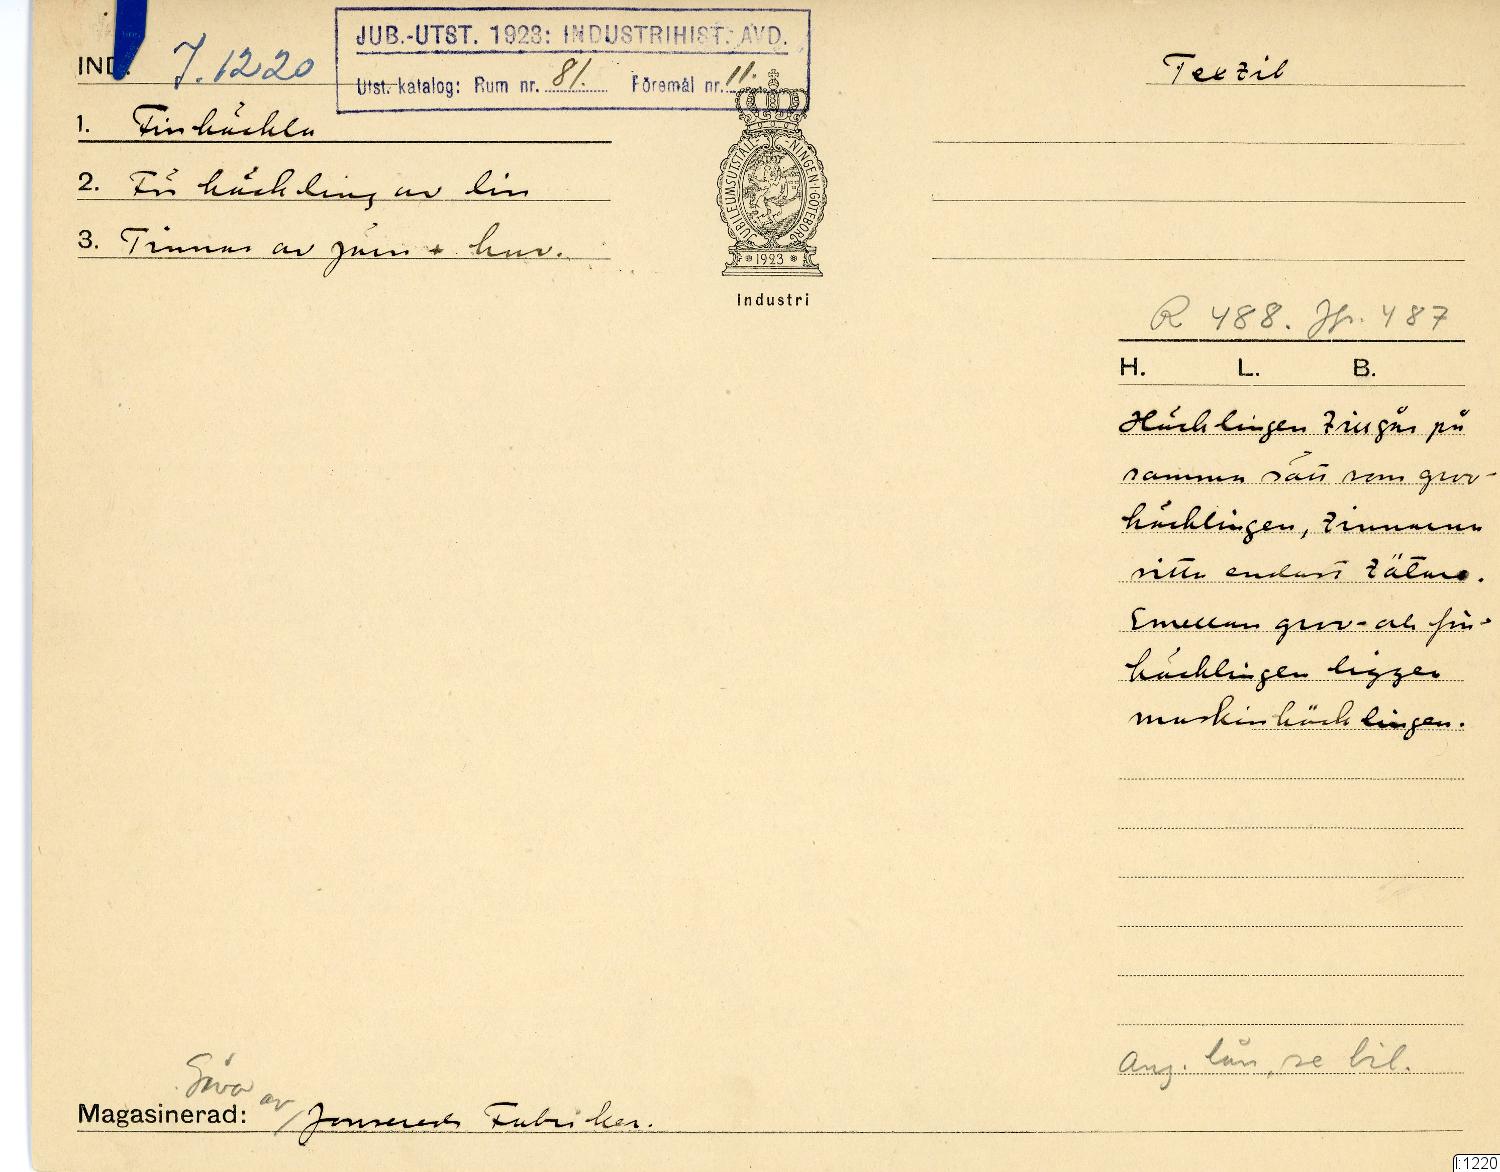 JUB.-UTST. 1923: INDUSTRIHIST. AVD.
Utst. katalog: Rum nr. 81. Föremål nr. 11.
IND. J. 1220
Textil
1. Finhäckla
2. För häckling av lin
3. Tinnar av järn +
JUBILEUMSUTSTÄLLNINGEN·I·GÖTEBORG
1923
Industri
R 488. Jfr. 487
H. L. B.
Häcklingen tillgår på
samma sätt som grov-
häcklingen, tinnarna
sitta endast tätare.
Emellan grov- och fin-
häcklingen ligger
maskinhäcklingen.
Ang. lån, se bil.
Gåva av
Magasinerad: Jonsereds Fabriker.
I:1220